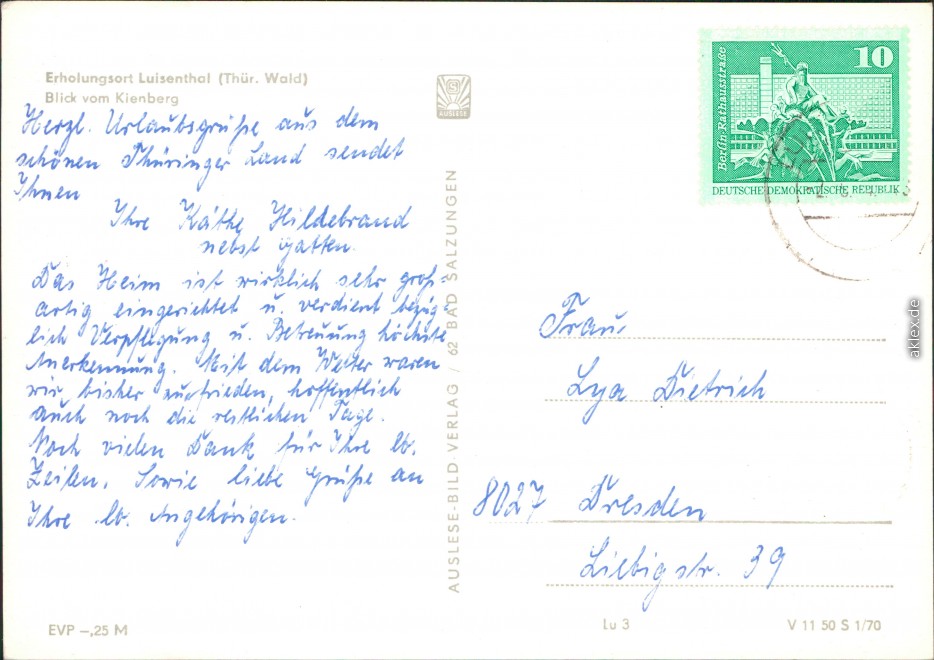 Erholungsort Luisenthal (Thür. Wald)
Blick vom Kienberg
Herzl. Urlaubsgrüße aus dem
schönen Thüringer Land sendet
Ihnen
Ihre Käthe Hildebrand
nebst Gatten.
Das Heim ist wirklich sehr groß-
artig eingerichtet u. verdient bezüg-
lich Verpflegung u. Betreuung höchste
Anerkennung. Mit dem Wetter waren
wir bisher zufrieden, hoffentlich
auch noch die restlichen Tage.
Noch vielen Dank für Ihre lb.
Zeilen. Sowie liebe Grüße an
Ihre lb. Angehörigen.
EVP –,25 M
AUSLESE
AUSLESE-BILD VERLAG / 62 BAD SALZUNGEN
10
Berlin·Rathausstraße
DEUTSCHE DEMOKRATISCHE REPUBLIK
Frau
Lya Dietrich
8027 Dresden
Liebigstr. 39
Lu 3
V 11 50 S 1/70
aklex.de